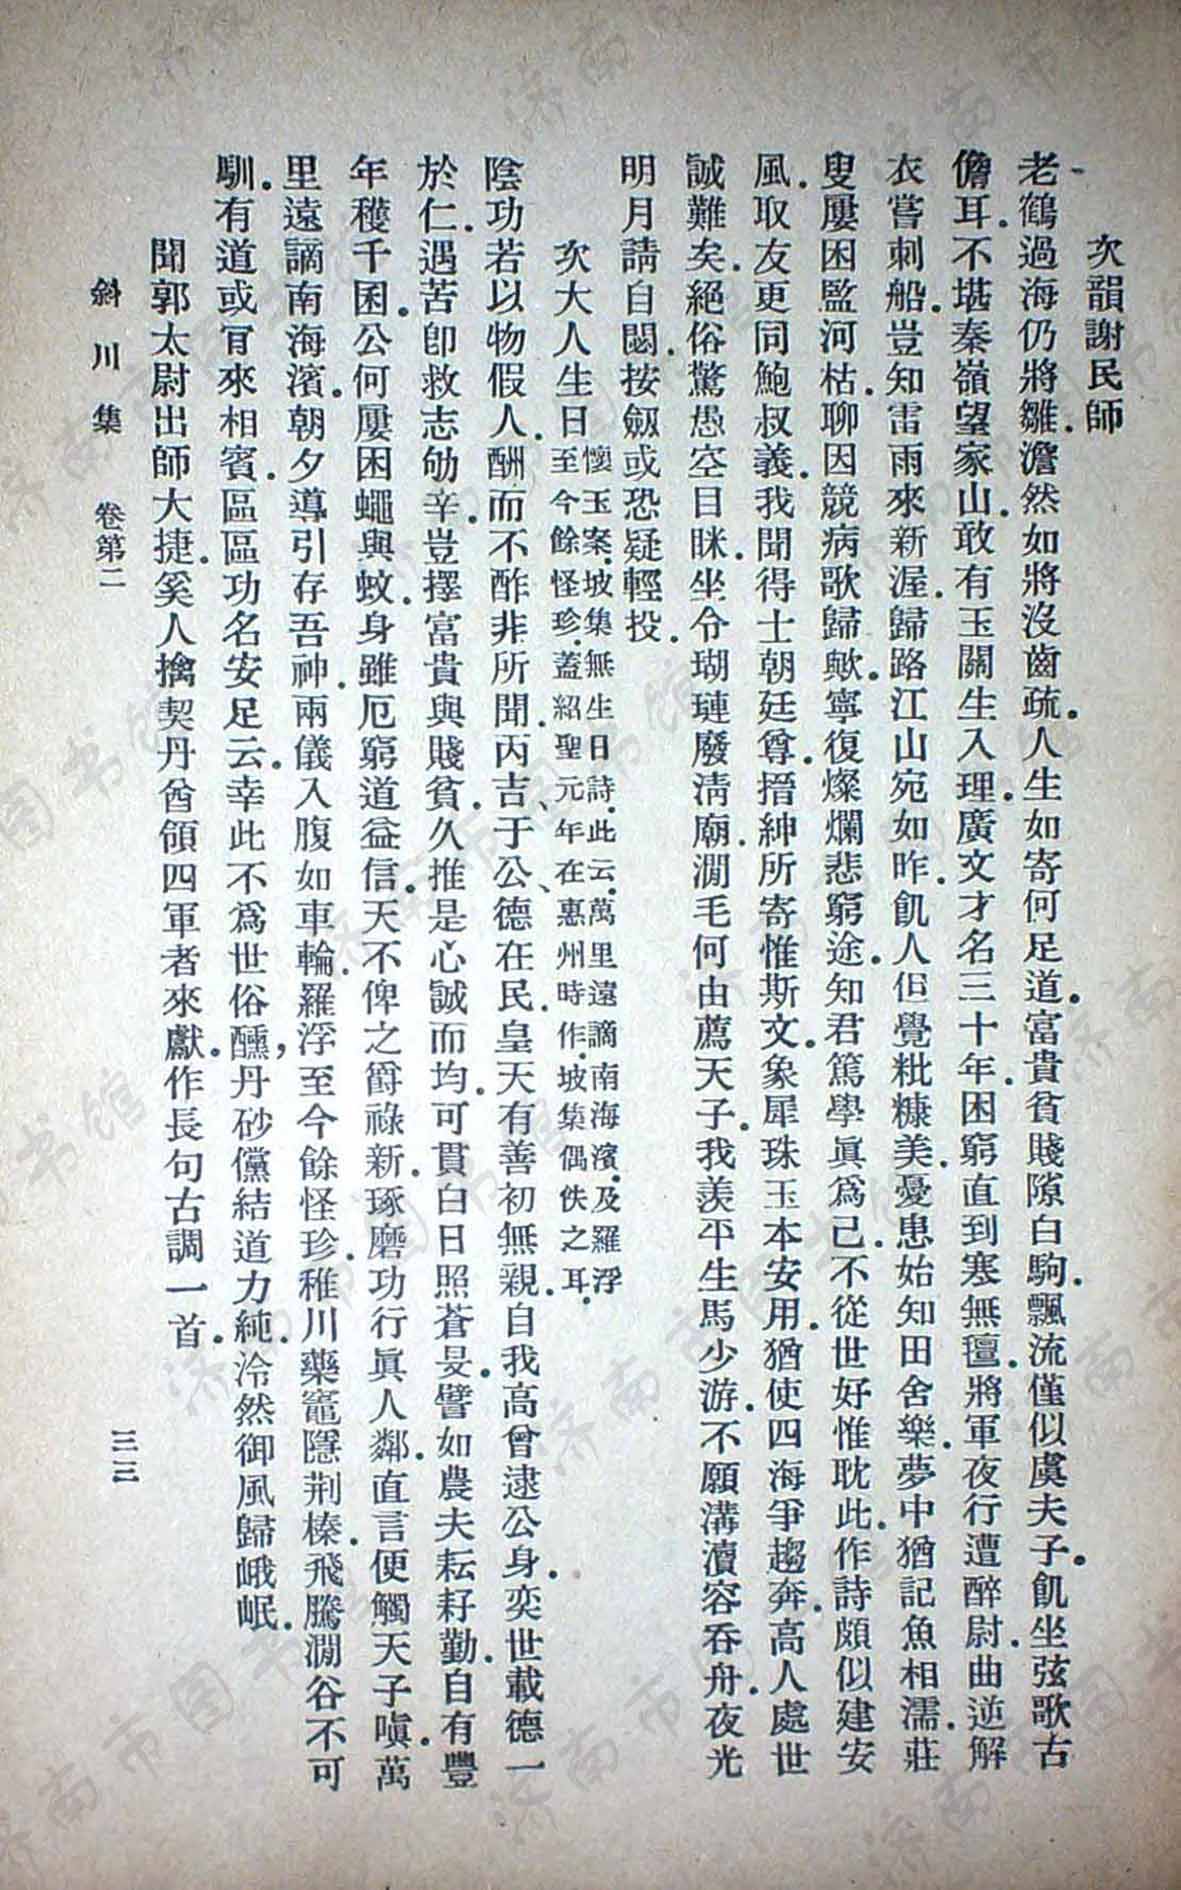 次韻謝民師
老鶴過海仍將雛.澹然如將沒齒疏.人生如寄何足道.富貴貧賤隙白駒.飄流僅似虞夫子.飢坐弦歌古
儋耳.不堪秦嶺望家山.敢有玉關生入理.廣文才名三十年.困窮直到寒無氊.將軍夜行遭醉尉.曲逆解
衣嘗刺船.豈知雷雨來新渥.歸路江山宛如昨.飢人但覺粃糠美.憂患始知田舍樂.夢中猶記魚相濡.莊
叟屢困監河枯.聊因競病歌歸歟.寧復燦爛悲窮途.知君篤學眞爲己.不從世好惟耽此.作詩頗似建安
風.取友更同鮑叔義.我聞得士朝廷尊.搢紳所寄惟斯文.象犀珠玉本安用.猶使四海爭趨奔.高人處世
誠難矣.絕俗驚愚空目眯.坐令瑚璉廢淸廟.澗毛何由薦天子.我羨平生馬少游.不願溝瀆容吞舟.夜光
明月請自閟.按劔或恐疑輕投.
次大人生日懷玉案.坡集無生日詩.此云.萬里遠謫南海濱.及羅浮
至今餘怪珍.蓋紹聖元年在惠州時作.坡集偶佚之耳.
陰功若以物假人.酬而不酢非所聞.丙吉、于公、德在民.皇天有善初無親.自我高曾逮公身.奕世載德一
於仁.遇苦卽救志劬辛.豈擇富貴與賤貧.久推是心誠而均.可貫白日照蒼旻.譬如農夫耘耔勤.自有豐
年穫千囷.公何屢困蠅與蚊.身雖厄窮道益信.天不俾之爵祿新.琢磨功行眞人鄰.直言便觸天子嗔.萬
里遠謫南海濱.朝夕導引存吾神.兩儀入腹如車輪.羅浮至今餘怪珍.稚川藥竈隱荆榛.飛騰澗谷不可
馴.有道或肎來相賓.區區功名安足云.幸此不爲世俗醺,丹砂儻結道力純.泠然御風歸峨岷.
聞郭太尉出師大捷.奚人擒契丹酋領四軍者來獻.作長句古調一首.
斜川集 卷第二
三三